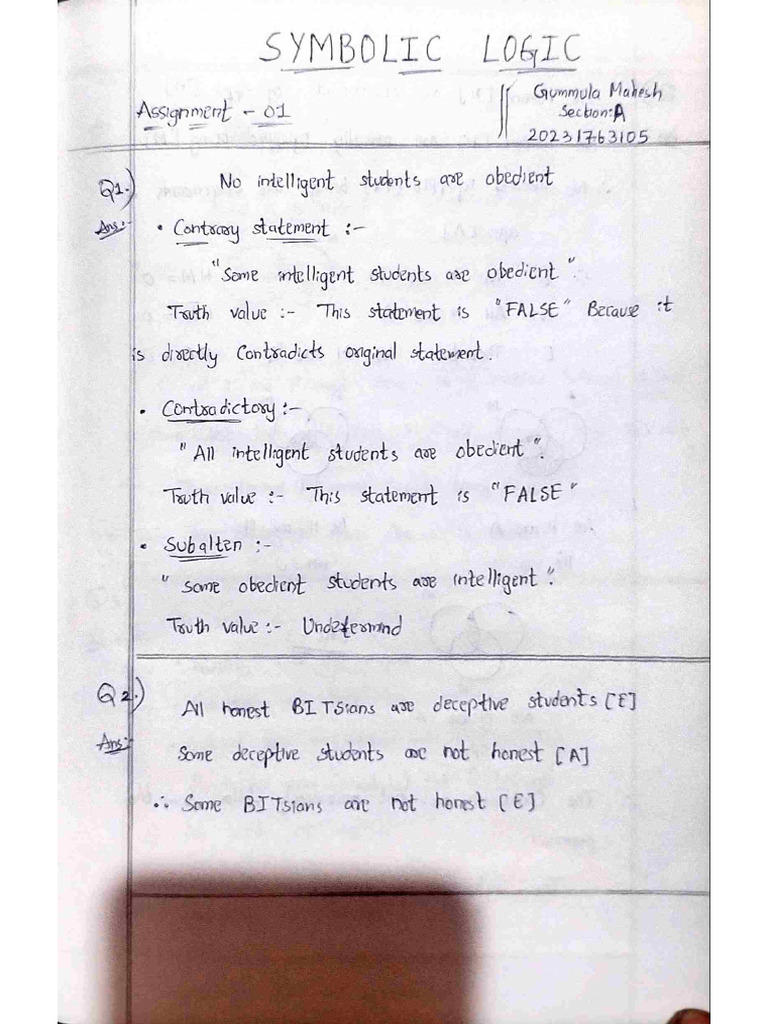 SYMBOLIC LOGIC
Assignment - 01
Gummula Mahesh
Section:A
20231763105
Q1.) No intelligent students are obedient
Ans:- • Contrary statement :-
"Some intelligent students are obedient".
Truth value :- This statement is "FALSE" Because it
is directly Contradicts original statement.
• Contradictory :-
"All intelligent students are obedient".
Truth value :- This statement is "FALSE"
• Subalten :-
"Some obedient students are intelligent".
Truth value :- Undetermind
Q2.) All honest BITSians are deceptive students [E]
Ans:- Some deceptive students are not honest [A]
∴ Some BITsians are not honest [E]